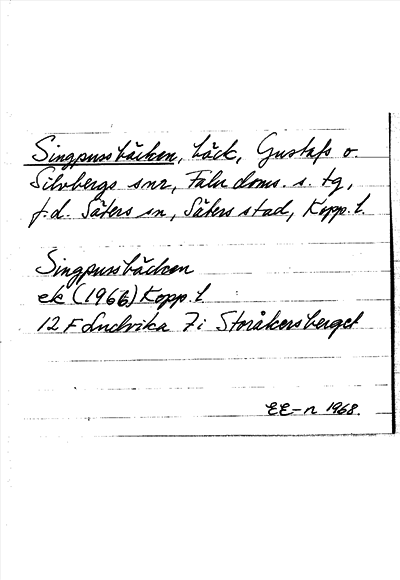 Singpussbäcken, bäck, Gustafs o.
Silvbergs snr, Falu doms. s. tg,
f.d. Säters sn, Säters stad, Kopp. l.
Singpussbäcken
ek (1966) Kopp. l.
12 F Ludvika 7i Storåkersberget
EE-n 1968.